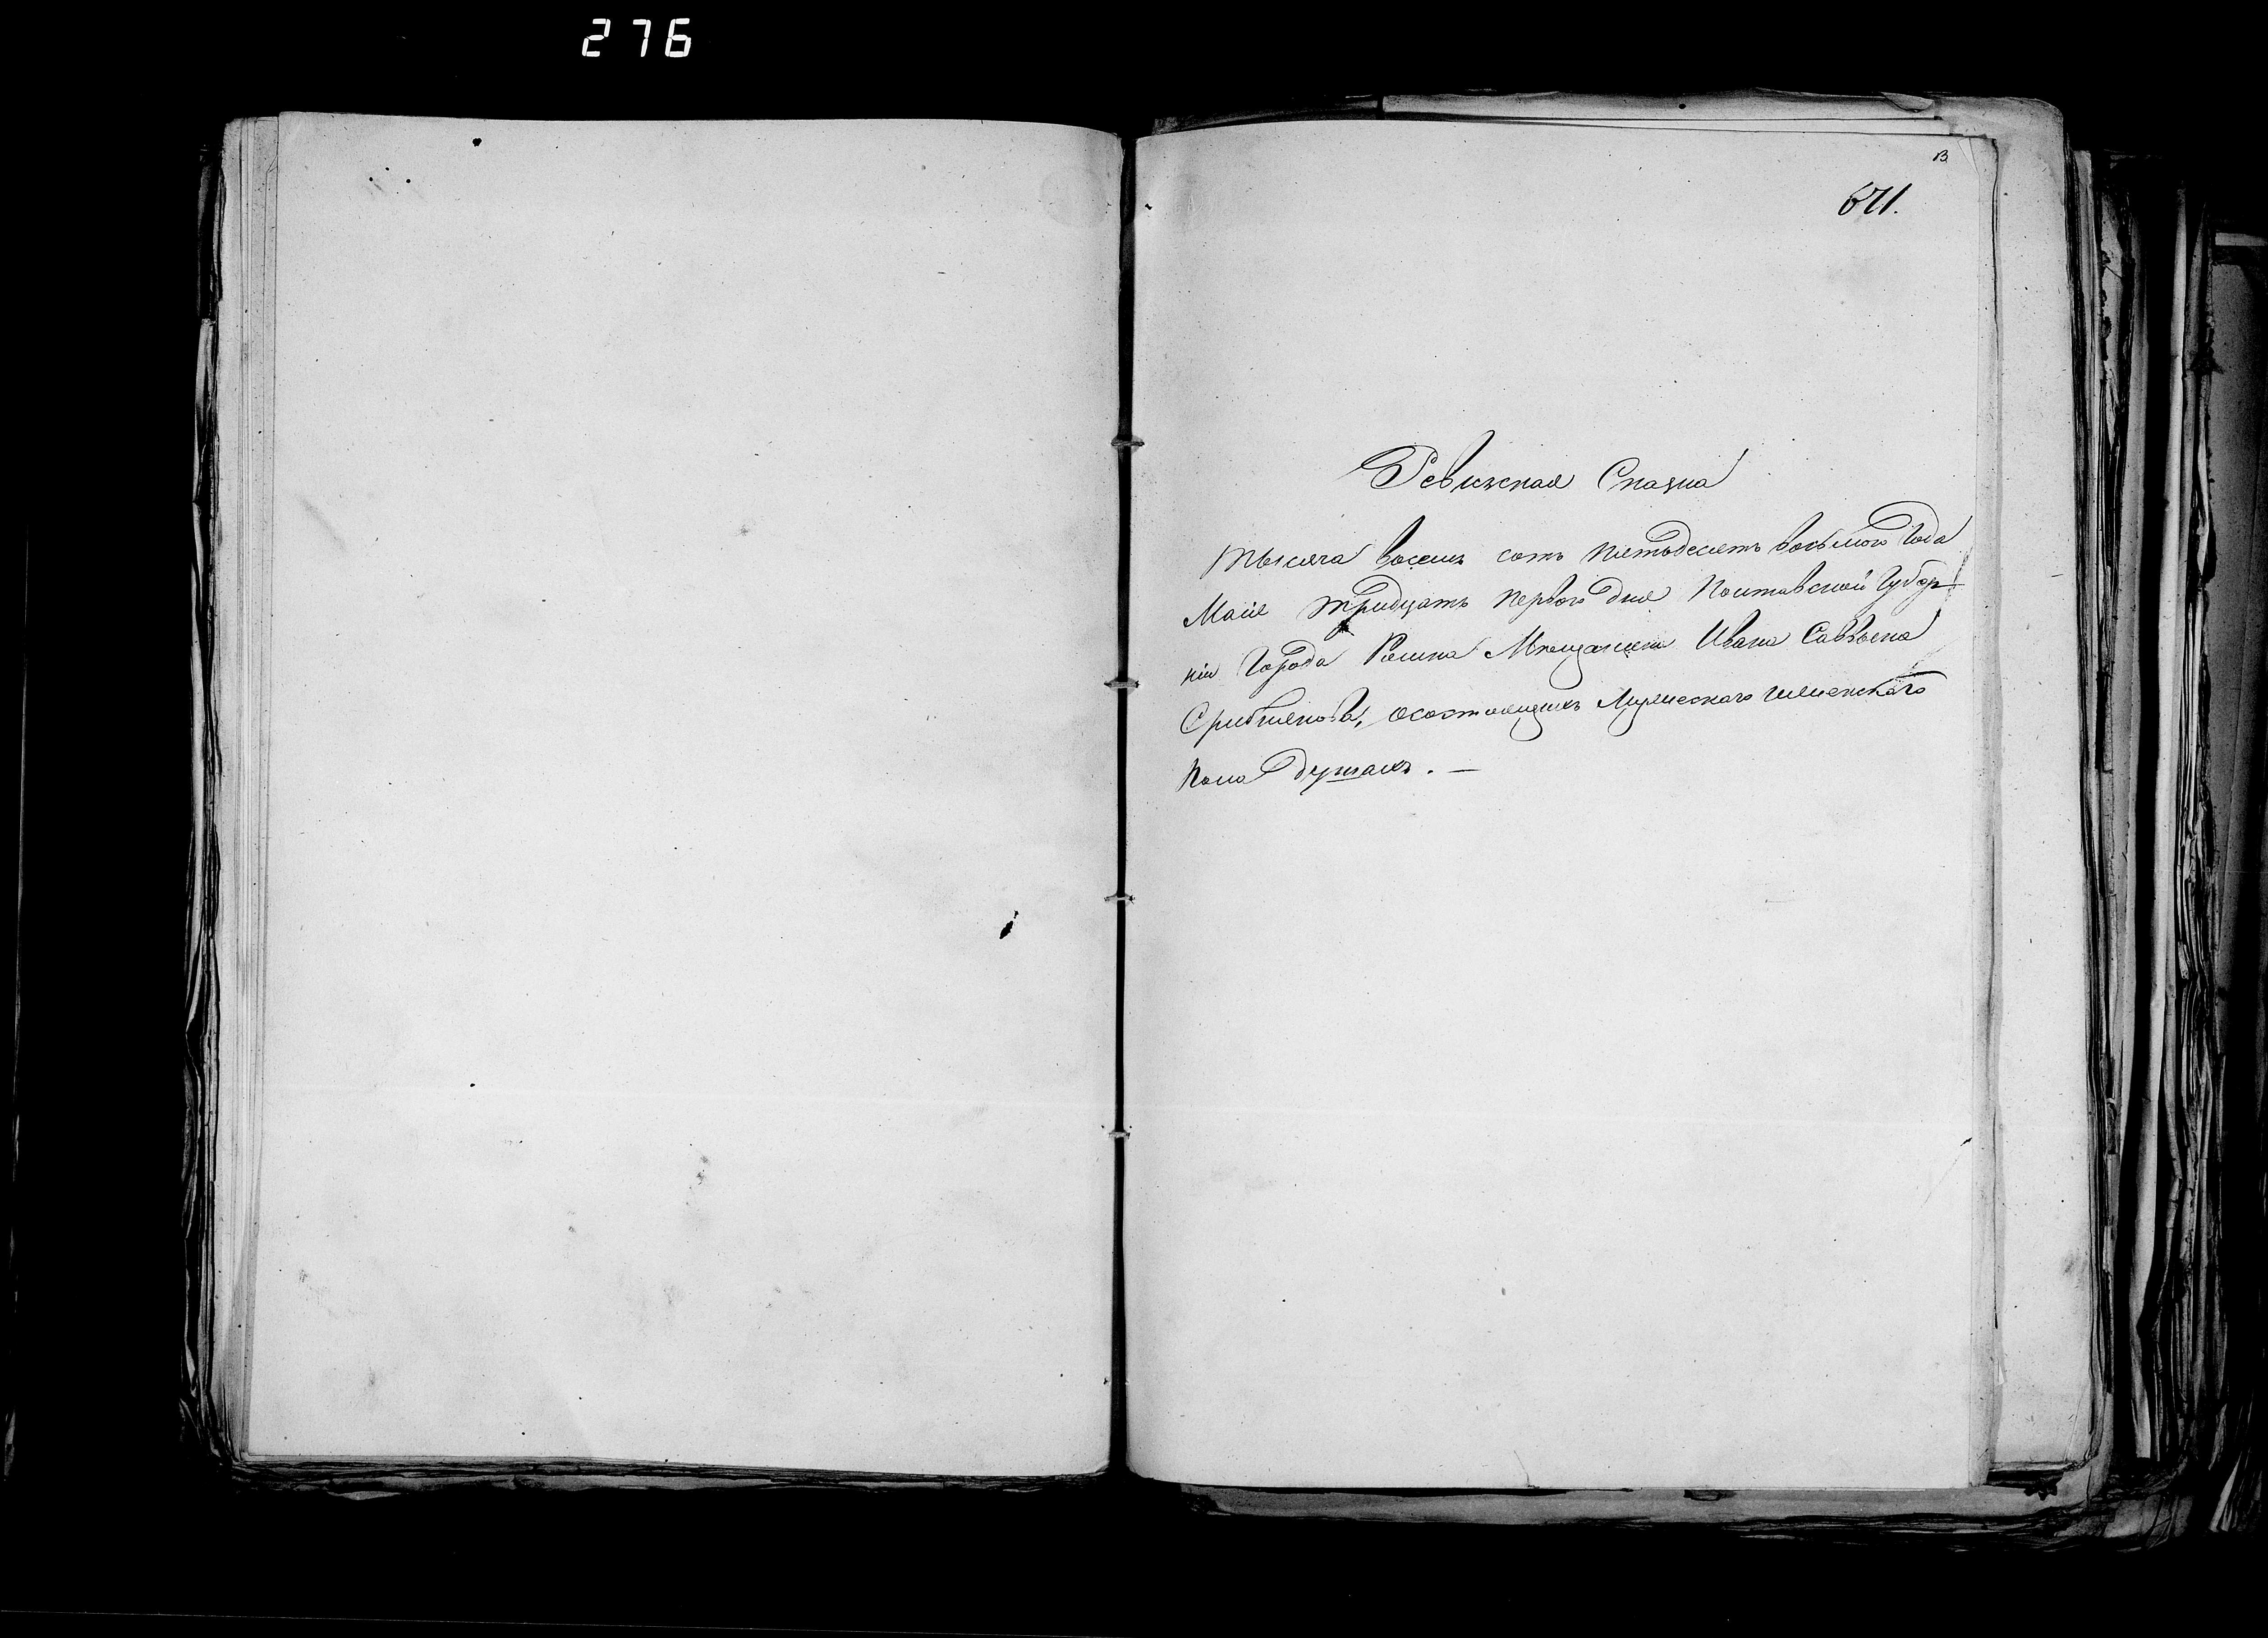 276
В
671.
Ревизская Сказка
Тысяча восемь сотъ пятьдесятъ восьмого Года
Маія тридцать перваго дня Полтавской Губер-
ніи Города Ромна Мѣщанина Ивана Саввина
осостоящихъ Мужескаго и женскаго
пола душахъ. —